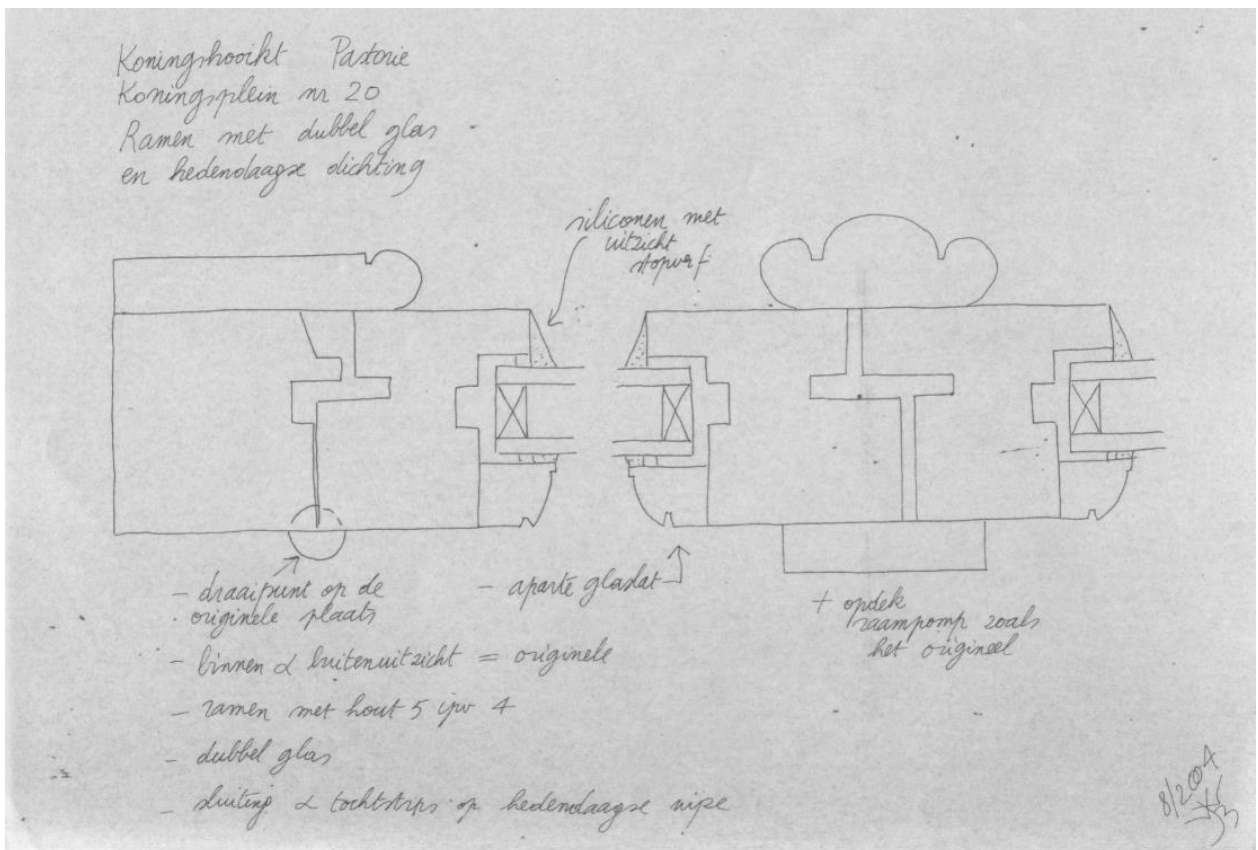 Koningshooikt Pastorie
Koningsplein nr 20
Ramen met dubbel glas
en hedendaagse dichting
siliconen met
uitzicht
stopverf
- draaipunt op de
originele plaats
- aparte glaslat
+ opdek
raampomp zoals
het origineel
- binnen & buitenuitzicht = originele
- ramen met hout 5 ipv 4
- dubbel glas
- sluiting & tochtstrips op hedendaagse wijze
8/2004